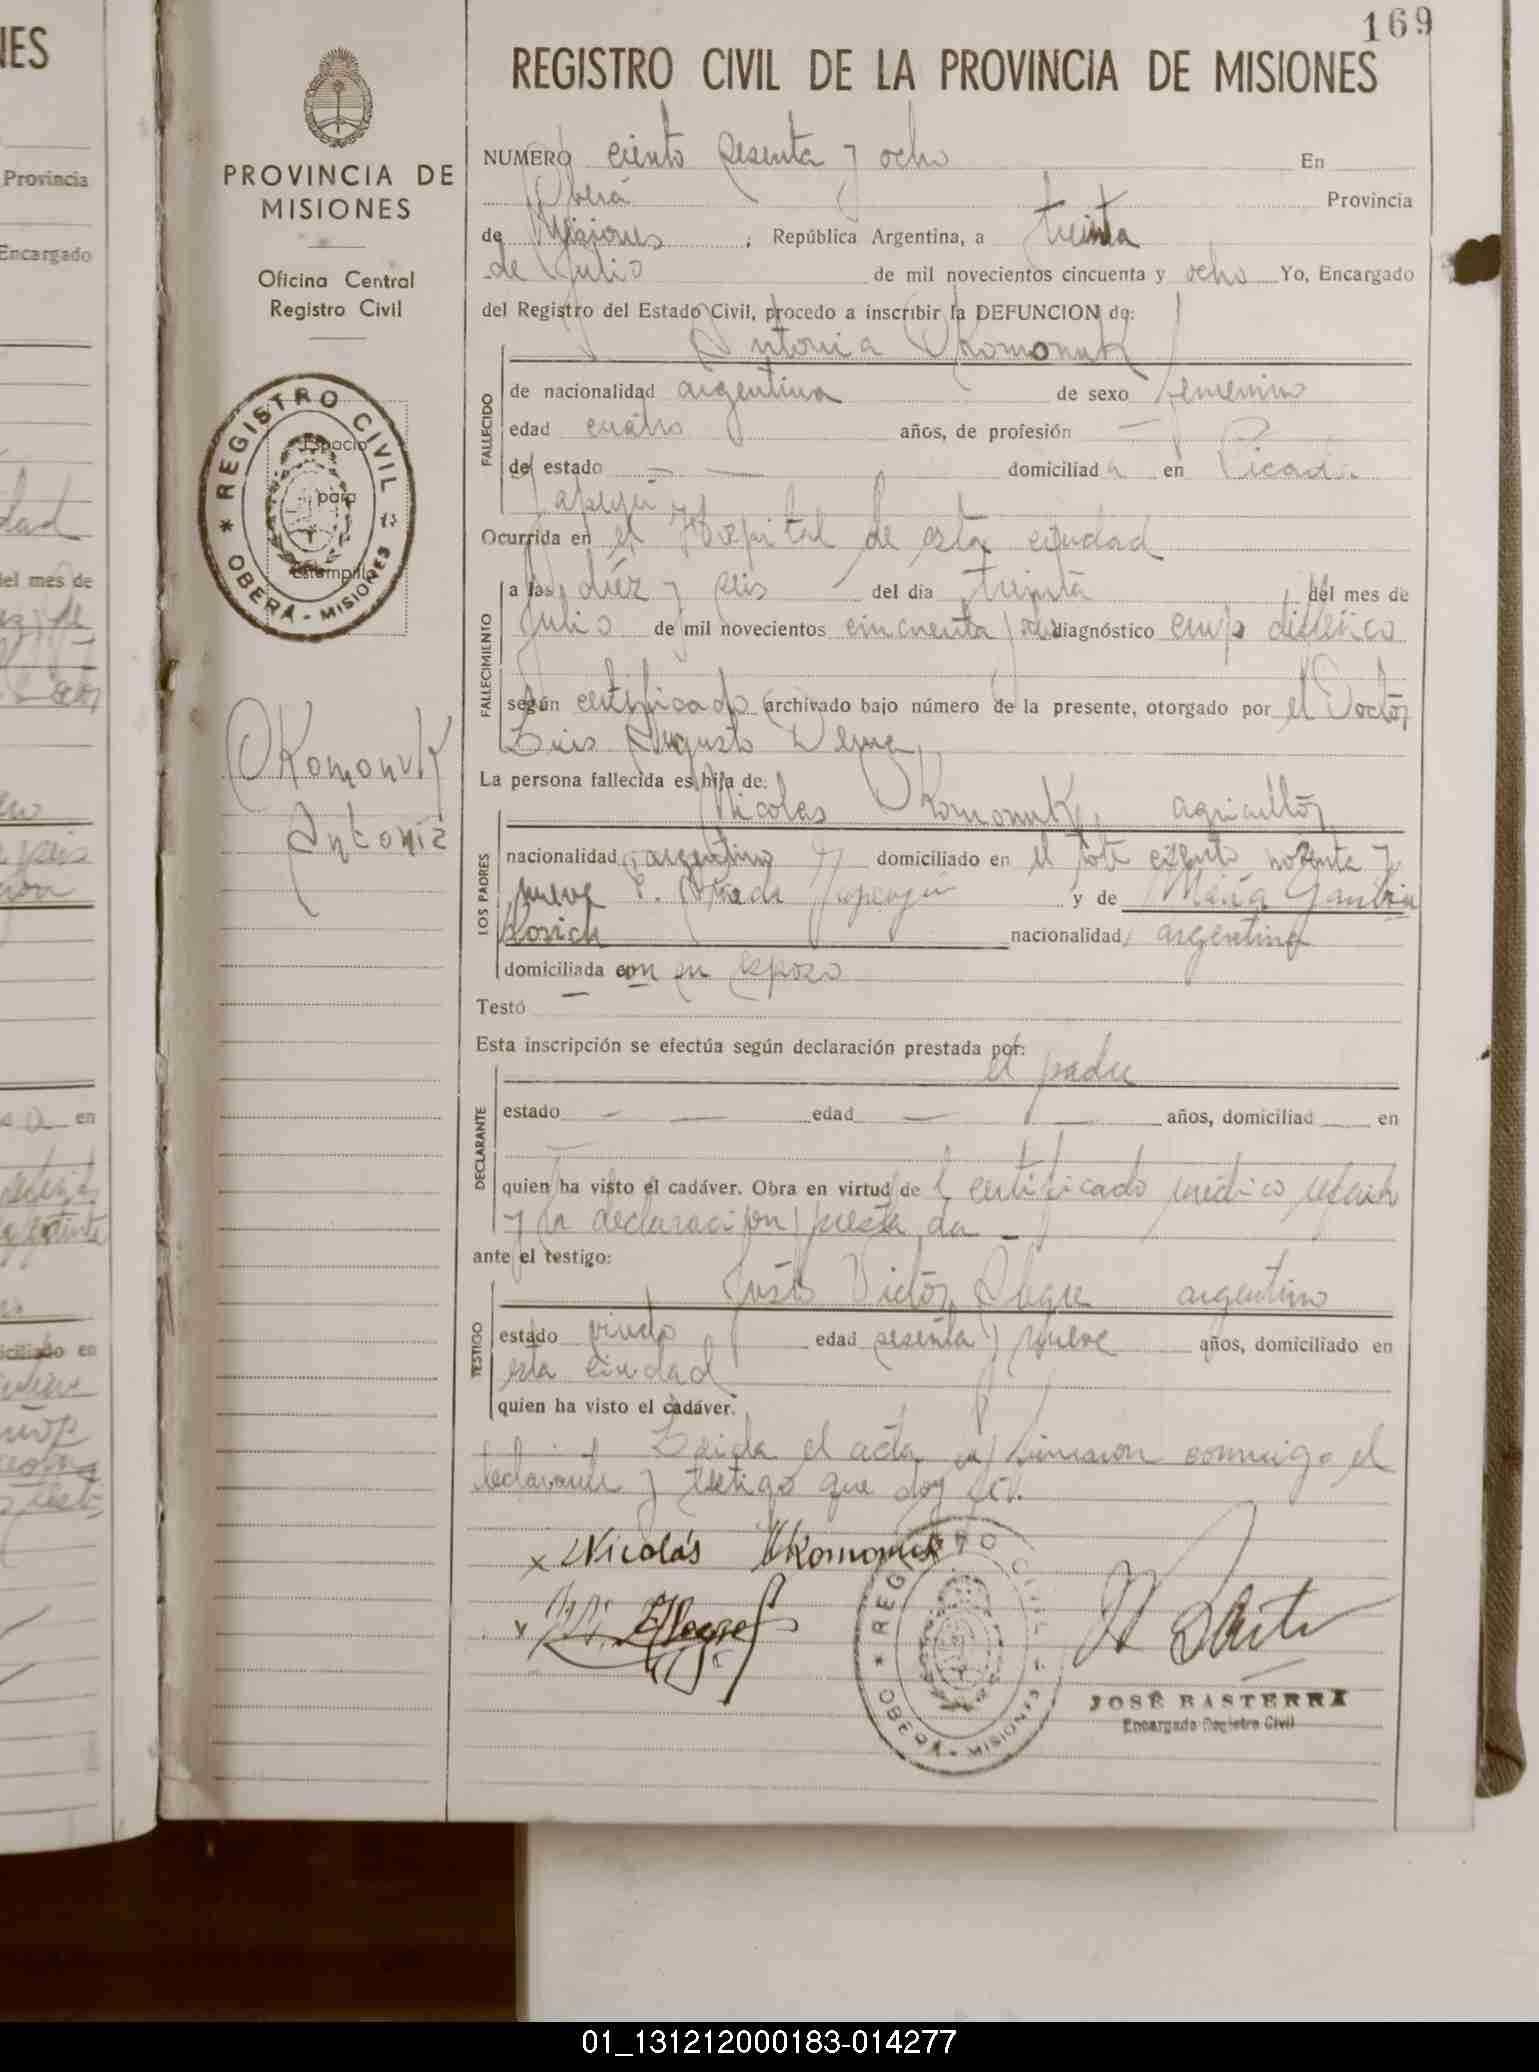 169
REGISTRO CIVIL DE LA PROVINCIA DE MISIONES
PROVINCIA DE
MISIONES
Oficina Central
Registro Civil
* REGISTRO CIVIL *
OBERÁ - MISIONES
Espacio
para
Estampilla
Okomonuk
Antonia
NUMERO ciento sesenta y ocho En
Oberá Provincia
de Misiones ; República Argentina, a treinta
de Julio de mil novecientos cincuenta y ocho Yo, Encargado
del Registro del Estado Civil, procedo a inscribir la DEFUNCION de:
Antonia Okomonuk
FALLECIDO
de nacionalidad argentina de sexo femenino
edad cuatro años, de profesión —
de estado — — domiciliada en Picada
Yapeyú
Ocurrida en el Hospital de esta ciudad
FALLECIMIENTO
a las diez y seis del día treinta del mes de
Julio de mil novecientos cincuenta y ocho diagnóstico crup diftérico
según certificado archivado bajo número de la presente, otorgado por el Doctor
Luis Augusto
La persona fallecida es hija de:
Nicolas Okomonuk, agricultor
LOS PADRES
nacionalidad argentino domiciliado en el lote ciento noventa y
nueve P. Picada Yapeyú y de María
nacionalidad argentina
domiciliada con su esposo
Testó —
Esta inscripción se efectúa según declaración prestada por:
el padre
DECLARANTE
estado — — edad — — años, domiciliad en
quien ha visto el cadáver. Obra en virtud del certificado médico
y la declaración prestada —
ante el testigo:
Justo Victor Alegre argentino
TESTIGO
estado viudo edad sesenta y nueve años, domiciliado en
esta ciudad
quien ha visto el cadáver.
Leida el acta firmaron conmigo el
declarante y testigo que doy fé.
x Nicolás Okomonuk
Alegre
* REGISTRO CIVIL *
OBERÁ - MISIONES
JOSÉ BASTERRA
Encargado Registro Civil
NES
Provincia
Encargado
dad
del mes de
en
01_131212000183-014277